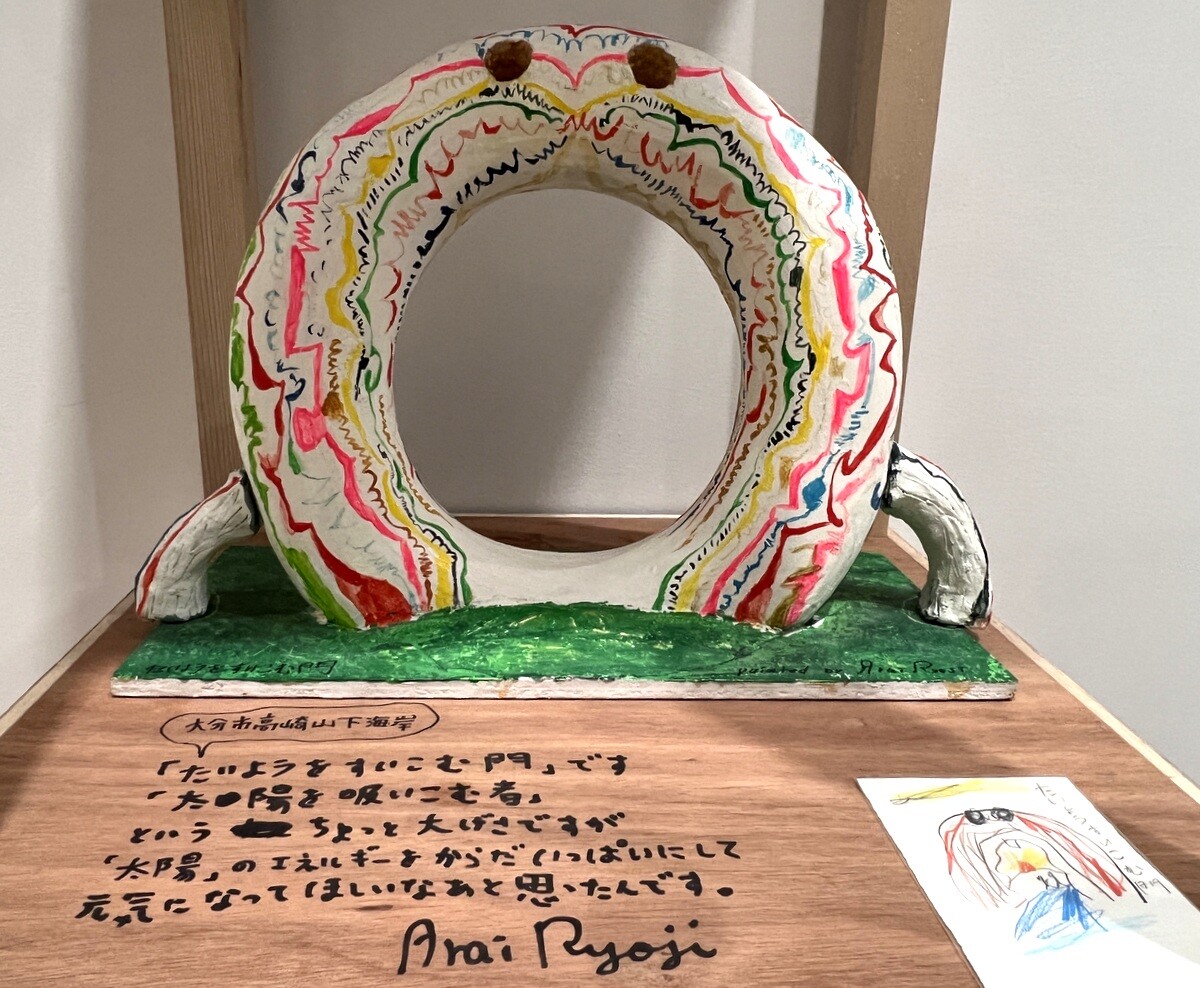 painted by Arai Ryoji
大分市高崎山下海岸
「たいようをすいこむ門」です
「太陽を吸いこむ者」
という ちょっと大げさですが
「太陽」のエネルギーをからだいっぱいにして
元気になってほしいなあと思ったんです。
Arai Ryoji